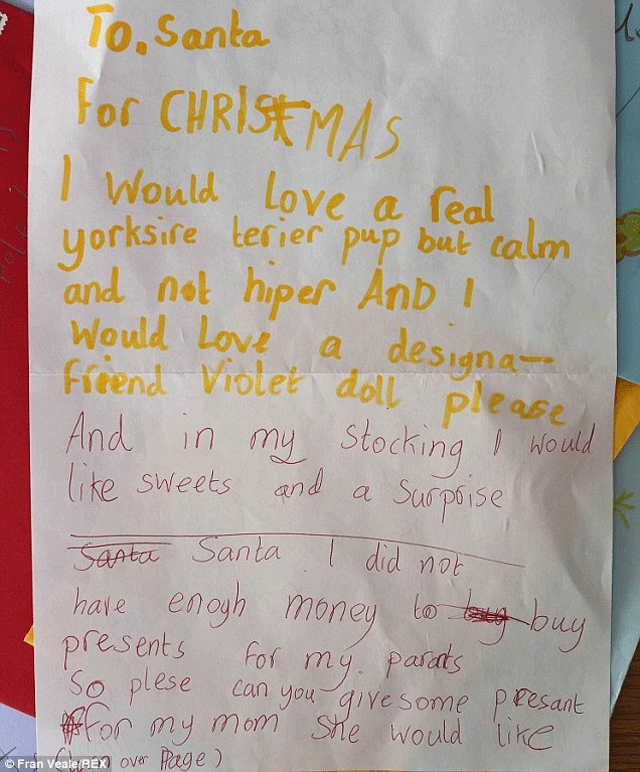 To. Santa
For CHRISTMAS
I Would Love a real
yorksire terier pup but calm
and not hiper AND I
Would Love a designa-
friend Violet doll please
And in my stocking I would
like sweets and a surprise
Santa Santa I did not
have enogh money to buy buy
presents for my parats
So plese can you give some presant
for my mom She would like
over Page)
© Fran Veale/REX